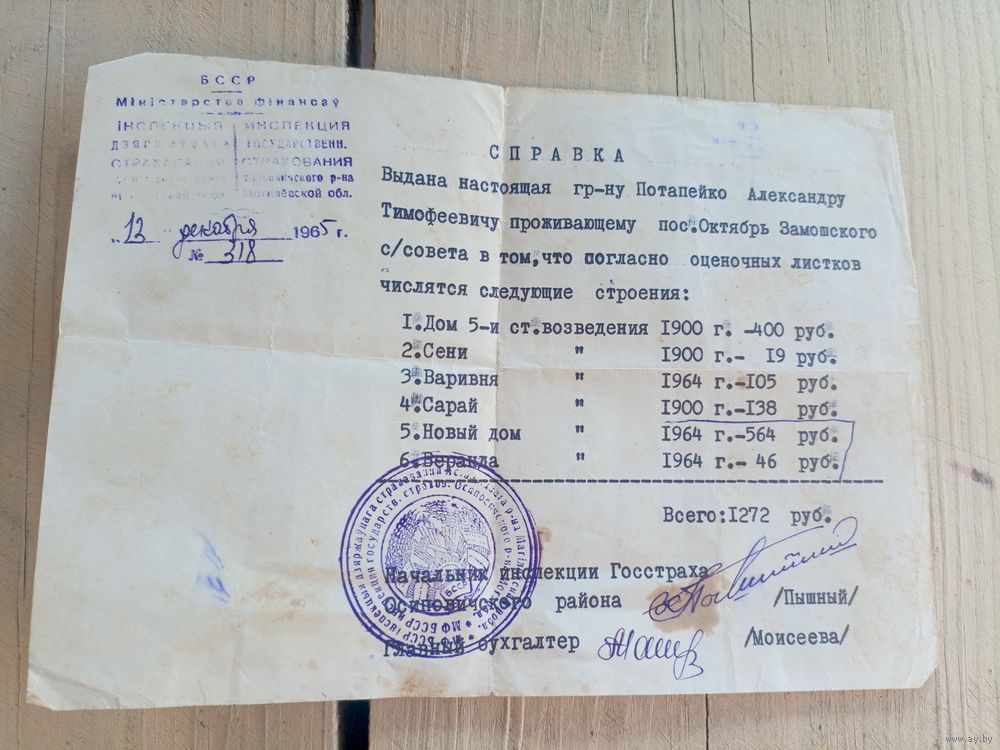 БССР
Міністэрства фінансаў
ІНСПЕКЦЫЯ ИНСПЕКЦИЯ
ДЗЯРЖАЎНАГА ГОСУДАРСТВЕНН.
СТРАХАВАННЯ СТРАХОВАНИЯ
Осиповичского р-на
Могилевской обл.
„12 " декабря 1965 г.
№ 318
СПРАВКА
Выдана настоящая гр-ну Потапейко Александру
Тимофеевичу проживающему пос.Октябрь Замошского
с/совета в том,что погласно оценочных листков
числятся следующие строения:
I.Дом 5-и ст.возведения I900 г. -400 руб.
2.Сени " I900 г.- I9 руб.
3.Варивня " I964 г.-I05 руб.
4.Сарай " I900 г.-I38 руб.
5.Новый дом " I964 г.-564 руб.
6.Веранда " I964 г.- 46 руб.
Всего:I272 руб.
Начальник инспекции Госстраха
Осиповичского района /Пышный/
Главный бухгалтер /Моисеева/
МФ БССР
БССР
www.ay.by